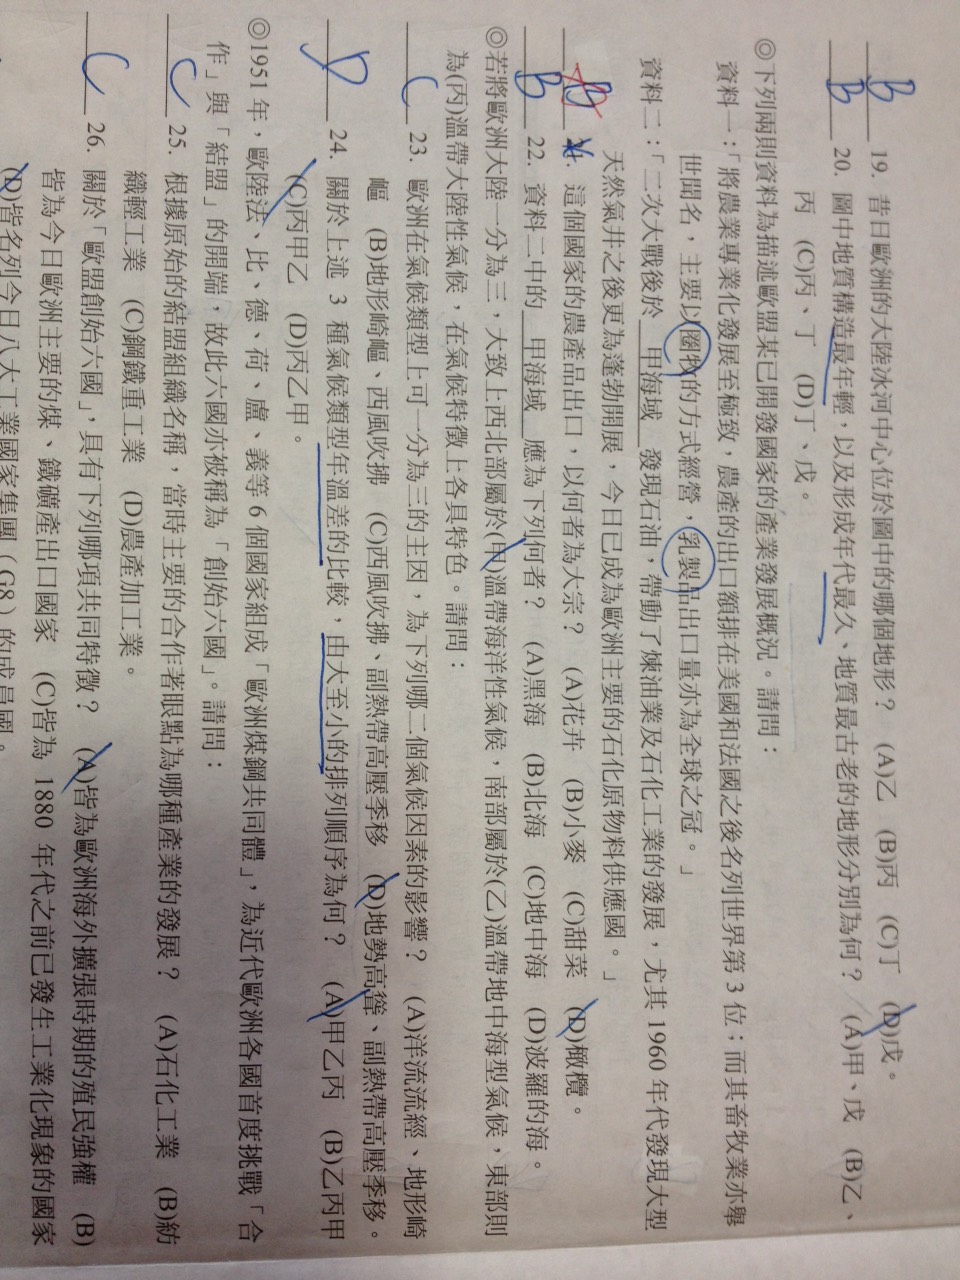 B 19. 昔日歐洲的大陸冰河中心位於圖中的哪個地形？ (A)乙 (B)丙 (C)丁 (D)戊。
B 20. 圖中地質構造最年輕，以及形成年代最久、地質最古老的地形分別為何？ (A)甲、戊 (B)乙、
丙 (C)丙、丁 (D)丁、戊。
◎下列兩則資料為描述歐盟某已開發國家的產業發展概況。請問：
資料一：「將農業專業化發展至極致，農產的出口額排在美國和法國之後名列世界第 3 位；而其畜牧業亦舉
世聞名，主要以圈牧的方式經營，乳製品出口量亦為全球之冠。」
資料二：「二次大戰後於 甲海域 發現石油，帶動了煉油業及石化工業的發展，尤其 1960 年代發現大型
天然氣井之後更為蓬勃開展，今日已成為歐洲主要的石化原物料供應國。」
21. 這個國家的農產品出口，以何者為大宗？ (A)花卉 (B)小麥 (C)甜菜 (D)橄欖。
B 22. 資料二中的 甲海域 應為下列何者？ (A)黑海 (B)北海 (C)地中海 (D)波羅的海。
◎若將歐洲大陸一分為三，大致上西北部屬於(甲)溫帶海洋性氣候，南部屬於(乙)溫帶地中海型氣候，東部則
為(丙)溫帶大陸性氣候，在氣候特徵上各具特色。請問：
C 23. 歐洲在氣候類型上可一分為三的主因，為下列哪二個氣候因素的影響？ (A)洋流流經、地形崎
嶇 (B)地形崎嶇、西風吹拂 (C)西風吹拂、副熱帶高壓季移 (D)地勢高聳、副熱帶高壓季移。
D 24. 關於上述 3 種氣候類型年溫差的比較，由大至小的排列順序為何？ (A)甲乙丙 (B)乙丙甲
(C)丙甲乙 (D)丙乙甲。
◎1951 年，歐陸法、比、德、荷、盧、義等 6 個國家組成「歐洲煤鋼共同體」，為近代歐洲各國首度挑戰「合
作」與「結盟」的開端，故此六國亦被稱為「創始六國」。請問：
C 25. 根據原始的結盟組織名稱，當時主要的合作者眼點為哪種產業的發展？ (A)石化工業 (B)紡
織輕工業 (C)鋼鐵重工業 (D)農產加工業。
C 26. 關於「歐盟創始六國」，具有下列哪項共同特徵？ (A)皆為歐洲海外擴張時期的殖民強權 (B)
皆為今日歐洲主要的煤、鐵礦產出口國家 (C)皆為 1880 年代之前已發生工業化現象的國家
(D)皆名列今日八大工業國家集團（G8）的成員國。